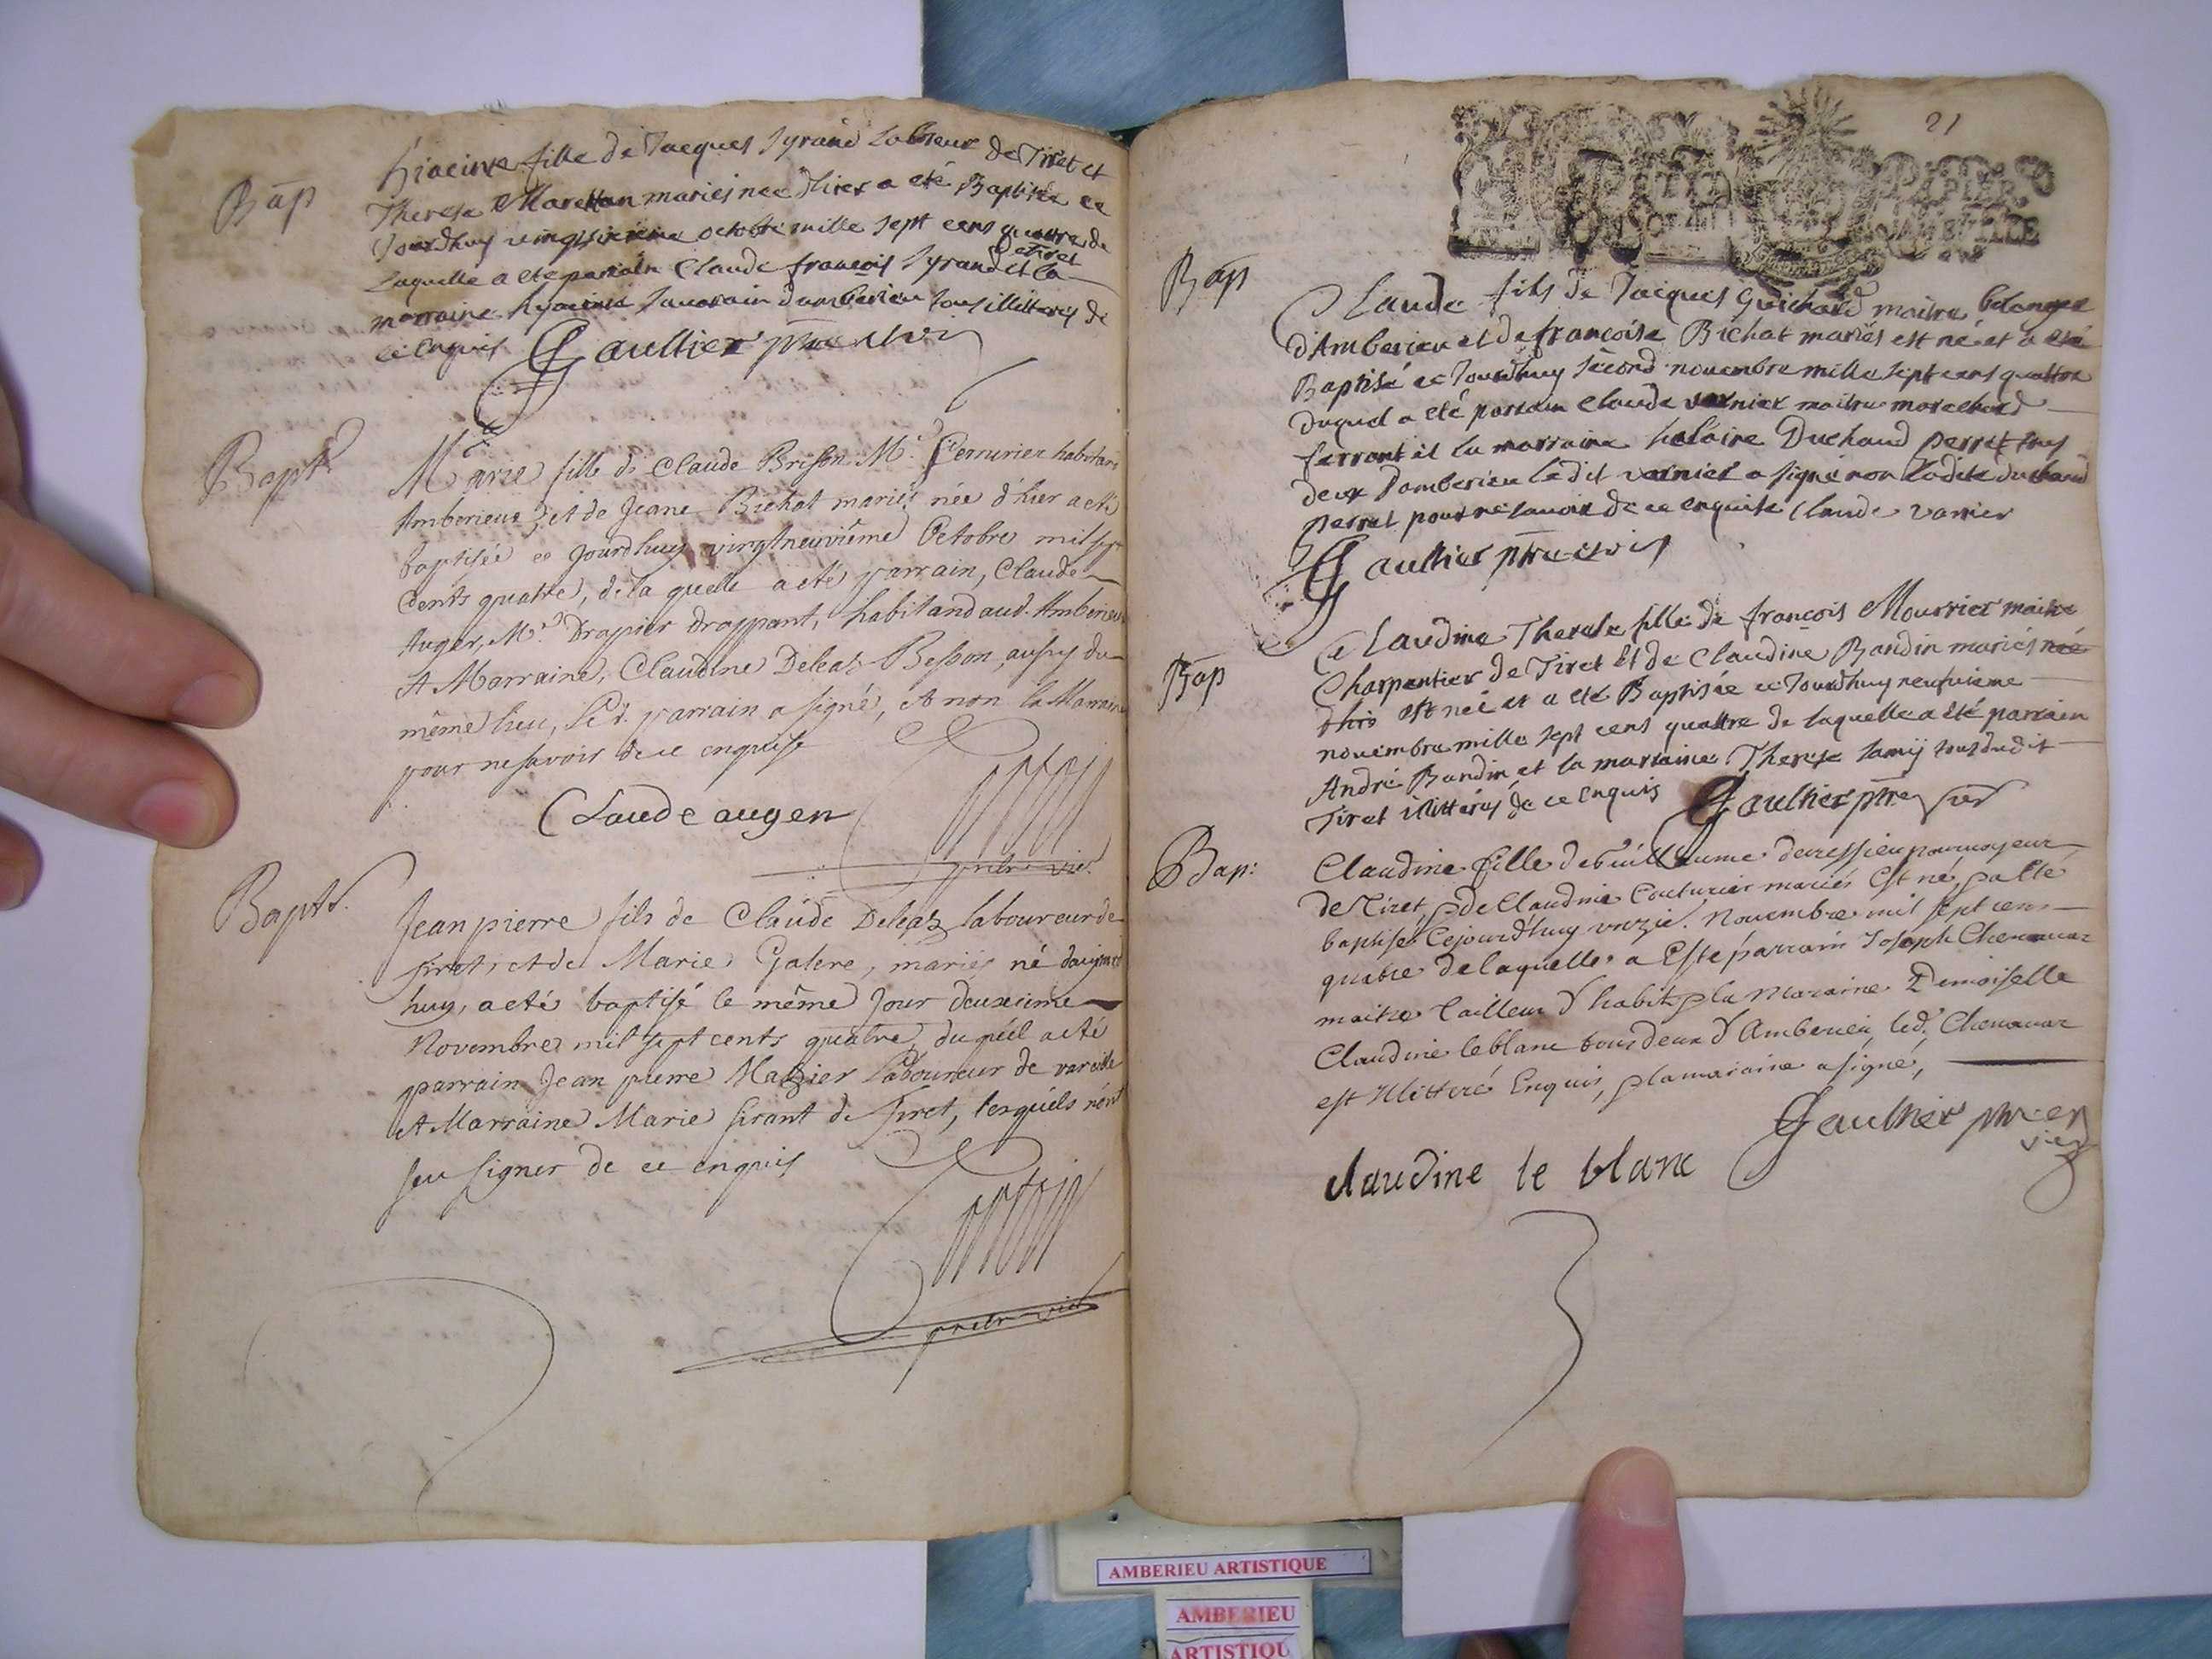 Bap
hiacinte fille de Jacques Syrand Laboreur de Tiret et
Therese Marettan mariés nee d'hier a eté Baptisée ce
Jourdhuy vingtsixieme octobre mille sept cens quattre de
Laquelle a eté parrain Claude françois Syrand de Tiret et la
marraine hyacinte d'amberieu tous illitterés de
ce enquis Gaultier ptre
Bapt
Marie fille de Claude Brisson Me Serrurier habitant
Amberieux, et de Jeane Bichat mariés née d'hier a eté
baptisée ce jourdhuy vingtneuviême Octobre mil sept
cents quatre, de la quelle a eté parrain, Claude
Auger, Me Drapier drappant, habitand aud. Amberieux
et Marraine, Claudine Deleaz Besson, aussy du
même lieu, Led. parrain a signé, et non la Marraine
pour ne savoir de ce enquise
Claude augen
prebr vic.
Bapt.
Jean pierre fils de Claude Deleaz laboureur de
tiret, et de Marie Galere, mariés né daujourd
huy, a eté baptisé le même Jour deuxieime
Novembre mil sept cents quatre, duquel a eté
parrain Jean pierre Mazier Laboureur de vareille
et Marraine Marie sirant de tiret, lesquels n'ont
seu signer de ce enquis
prebr vic
21
Bap
Claude fils de Jacques Guichard maitre bolanger
d'Amberieu et de françoise Bichat mariés est né et a eté
Baptisé ce Jourdhuy second novembre mille sept cens quattre
duquel a eté parrain Claude vernier maitre marechard
ferrant et la marraine helaine Duchaud perret tous
deux d'amberieu ledit vernier a signé non ladite duchaud
perret pour ne savoir de ce enquise Claude varnier
Gaultier ptre et vic
Bap
Claudine Therese fille de françois Mourrier maitre
Charpentier de Tiret et de Claudine Bandin mariés née
d'hier est née et a eté Baptisée ce Jourdhuy neufvieme
novembre mille sept cens quattre de laquelle a été parrain
André Bandin et la marraine Therese Lamy tous dudit
Tiret illitterés de ce enquis Gaultier ptre vic
Bap:
Claudine fille de Guillaume devressieu pourvoyeur
de Tiret, & de Claudine Couturier mariés est né, & a eté
baptisée Cejourd'huy unzie. Novembre mil sept cens
quatre de laquelle a Este parrain Joseph Chenavaz
maitre tailleur d'habit & la maraine Demoiselle
Claudine leblanc tous deux d'Amberieu, led. Chenavaz
est illitteré Enquis, & la maraine a signé,
Gaultier ptre et
vic
claudine le blanc
AMBERIEU ARTISTIQUE
AMBERIEU
ARTISTIQU